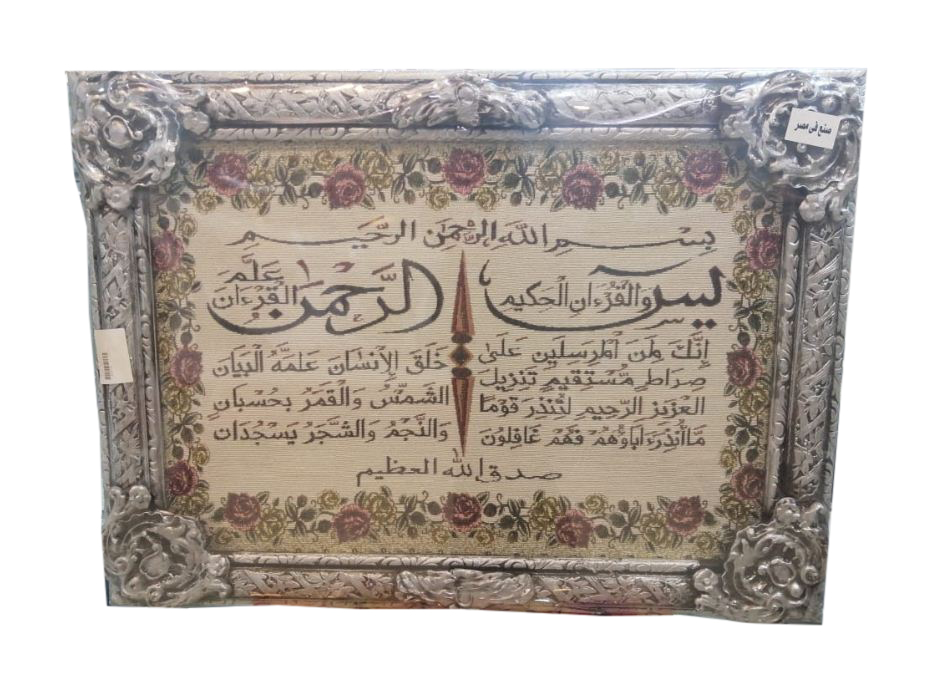 صنع في مصر
بِسْمِ اللَّهِ الرَّحْمَٰنِ الرَّحِيمِ
يسٓ وَالْقُرْءَانِ الْحَكِيمِ
إِنَّكَ لَمِنَ الْمُرْسَلِينَ عَلَىٰ
صِرَاطٍ مُّسْتَقِيمٍ تَنزِيلَ
الْعَزِيزِ الرَّحِيمِ لِتُنذِرَ قَوْمًا
مَّا أُنذِرَ ءَابَاؤُهُمْ فَهُمْ غَافِلُونَ
الرَّحْمَٰنُ عَلَّمَ الْقُرْءَانَ
خَلَقَ الْإِنسَٰنَ عَلَّمَهُ الْبَيَانَ
الشَّمْسُ وَالْقَمَرُ بِحُسْبَانٍ
وَالنَّجْمُ وَالشَّجَرُ يَسْجُدَانِ
صدق الله العظيم